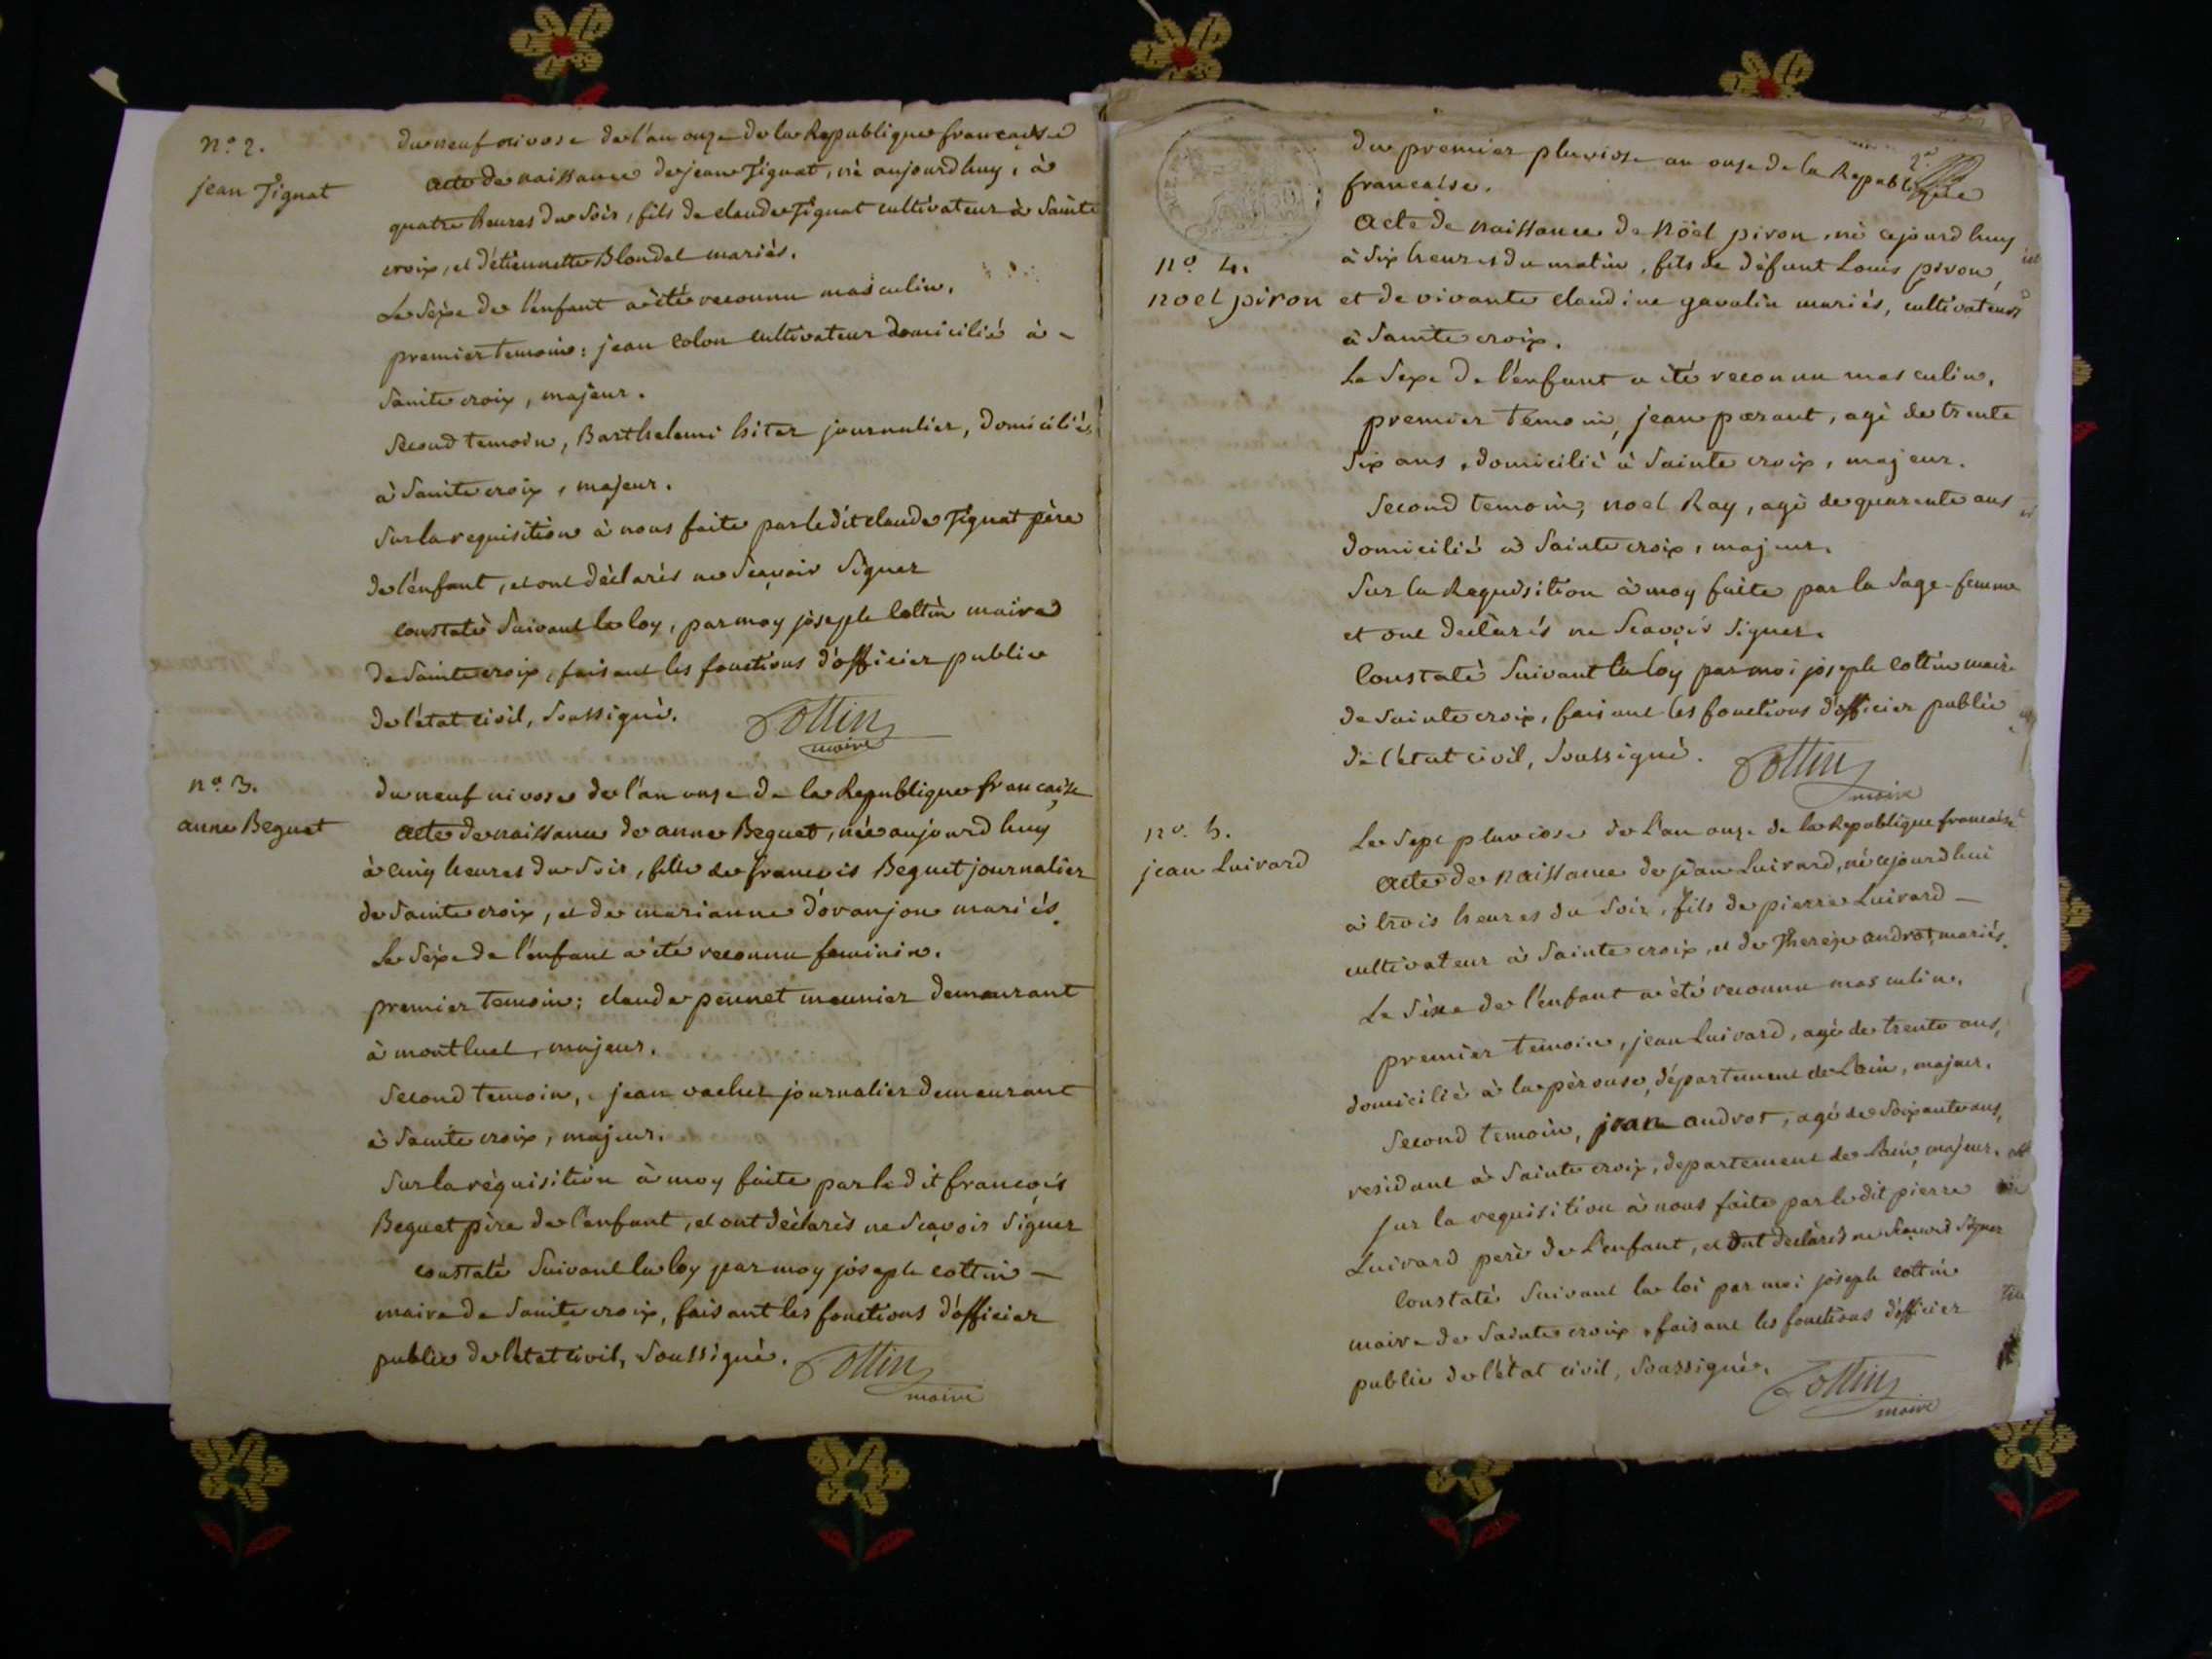 n.° 2.
jean Tignat
du neuf nivose de l'an onze de la Republique francaise
acte de naissance de jean Tignat, né aujourdhuy, à
quatre heures du Soir, fils de claude Tignat cultivateur à Sainte
croix, et d'étiennette Blondel mariés.
Le Séxe de l'enfant à été reconnu masculin.
premier temoin: jean colon cultivateur domicilié à -
Sainte croix, majeur.
Second temoin, Barthelemi hiter journalier, domicilié
à Sainte croix, majeur.
Sur la requisition à nous faite par ledit claude Tignat père
de l'enfant, et ont déclarés ne Scavoir Signer
constaté Suivant la loy, par moy joseph Cottin maire
de Sainte croix, faisant les fonctions d'officier public
de l'état civil, Soussigné.
Cottin
maire
n.° 3.
anne Beguet
du neuf nivose de l'an onze de la Republique francaise
acte de naissance de anne Beguet, née aujourdhuy
à cinq heures du Soir, fille de francois Beguet journalier
de Sainte croix, et de marianne d'ovanjon mariés.
Le Séxe de l'enfant à été reconnu feminin.
premier temoin; claude pennet meunier demeurant
à montluel, majeur.
Second temoin, jean vacher journalier demeurant
à Sainte croix, majeur.
Sur la réquisition à moy faite par ledit francois
Beguet père de l'enfant, et ont déclarés ne Scavoir Signer
constaté Suivant la loy par moy joseph cottin -
maire de Sainte croix, faisant les fonctions d'officier
public de l'état civil, Soussigné.
Cottin
maire
du premier pluviose an onze de la Republique
francaise.
n.° 4.
noel piron
acte de naissance de Nöel piron, né cejourdhuy
à Six heures du matin, fils de défunt Louis piron,
et de vivante claudine gavalin mariés, cultivateurs
à Sainte croix.
Le Sexe de l'enfant a été reconnu masculin.
premier temoin, jean parant, agé de trente
Six ans, domicilié à Sainte croix, majeur.
Second temoin, noel Ray, agé de quarente ans
domicilié à Sainte croix, majeur.
Sur la Requisition à moy faite par la Sage-femme
et ont declarés ne Scavoir Signer.
Constaté Suivant la loy par moi joseph cottin maire
de Sainte croix, faisant les fonctions d'officier public
de l'état civil, Soussigné.
Cottin
maire
n.° 5.
jean Luivard
Le Sept pluviose de L'an onze de la Republique francaise
acte de Naissance de jean Luivard, né cejourdhui
à trois heures du Soir, fils de pierre Luivard -
cultivateur à Sainte croix, et de Thereze androt, mariés.
Le Séxe de l'enfant à été reconnu masculin.
premier temoin, jean Luivard, agé de trente ans,
domicilié à la pérouse, département de L'ain, majeur.
Second temoin, jean androt, agé de Soixante ans,
residant à Sainte croix, departement de L'ain, majeur.
Sur la requisition à nous faite par ledit pierre
Luivard peré de L'enfant, et ont declarés ne Scavoir Signer
Constaté Suivant la loi par moi joseph cottin
maire de Sainte croix, faisant les fonctions d'officier
public de l'état civil, Soussigné.
Cottin
maire